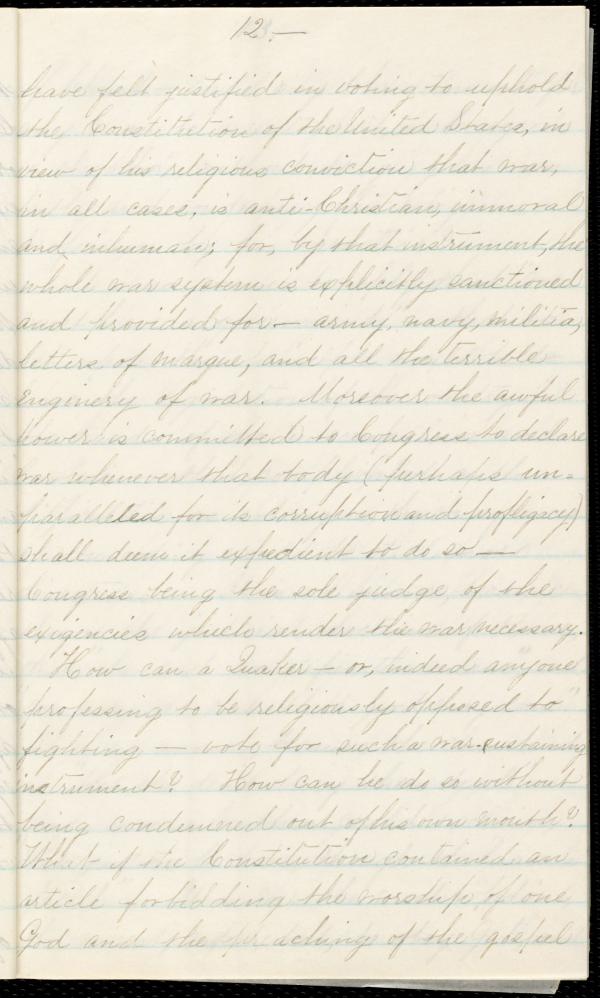 12.—
have felt justified in voting to uphold
the Constitution of the United States, in
view of his religious conviction that war,
in all cases, is anti-Christian, immoral
and inhuman; for, by that instrument, the
whole war system is explicitly sanctioned
and provided for — army, navy, militia,
letters of marque, and all the terrible
enginery of war. Moreover the awful
power is committed to Congress to declare
war whenever that body (perhaps un=
paralleled for its corruption and profligacy)
shall deem it expedient to do so —
Congress being the sole judge of the
exigencies which render the war necessary.
How can a Quaker — or, indeed anyone
"professing to be religiously opposed to"
fighting — vote for such a war-sustaining
instrument? How can he do so without
being condemned out of his own mouth?
What if the Constitution contained an
article forbidding the worship of one
God and the preaching of the gospel